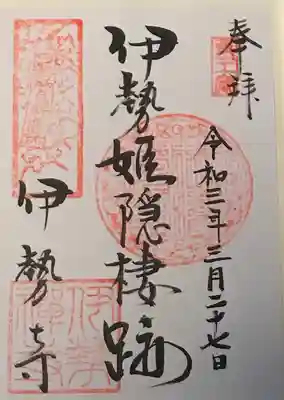 奉拝
令和三年三月二十七日
伊勢姫隠棲跡
伊勢寺